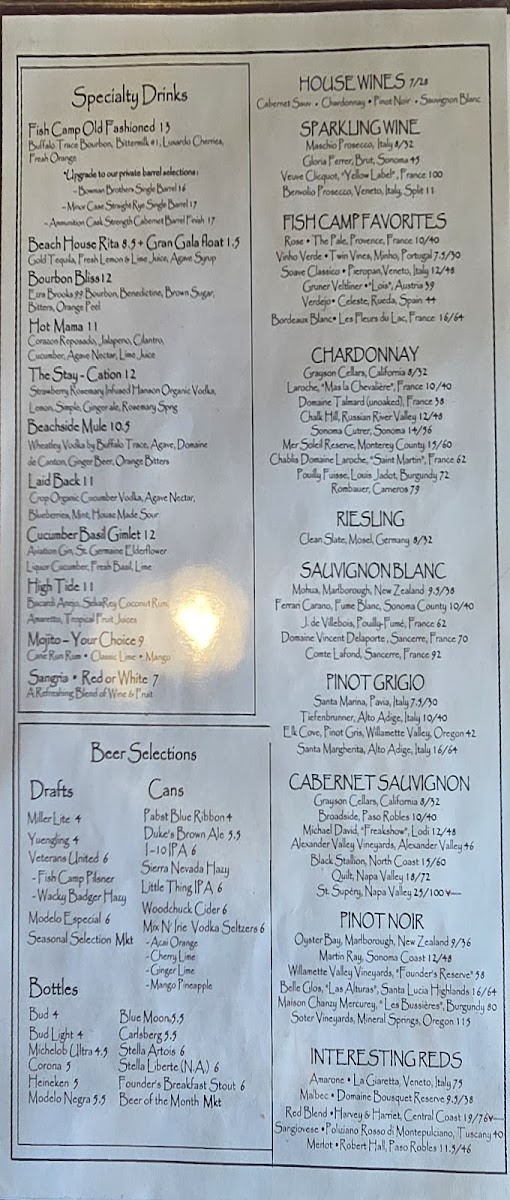 Specialty Drinks
Fish Camp Old Fashioned 13
Buffalo Trace Bourbon, Bittermilk #1, Luxardo Cherries,
Fresh Orange
*Upgrade to our private barrel selections:
- Bowman Brothers Single Barrel 16
- Minor Case Straight Rye Single Barrel 17
- Ammunition Cask Strength Cabernet Barrel Finish 17
Beach House Rita 8.5 + Gran Gala float 1.5
Gold Tequila, Fresh Lemon & Lime Juice, Agave Syrup
Bourbon Bliss 12
Ezra Brooks 99 Bourbon, Benedictine, Brown Sugar,
Bitters, Orange Peel
Hot Mama 11
Corazon Reposado, Jalapeno, Cilantro,
Cucumber, Agave Nectar, Lime Juice
The Stay - Cation 12
Strawberry Rosemary Infused Hanson Organic Vodka,
Lemon, Simple, Ginger ale, Rosemary Sprig
Beachside Mule 10.5
Wheatley Vodka by Buffalo Trace, Agave, Domaine
de Canton, Ginger Beer, Orange Bitters
Laid Back 11
Crop Organic Cucumber Vodka, Agave Nectar,
Blueberries, Mint, House Made Sour
Cucumber Basil Gimlet 12
Aviation Gin, St. Germaine Elderflower
Liquor Cucumber, Fresh Basil, Lime
High Tide 11
Bacardi Anejo, SelvaRey Coconut Rum,
Amaretto, Tropical Fruit Juices
Mojito - Your Choice 9
Cane Run Rum • Classic Lime • Mango
Sangria • Red or White 7
A Refreshing Blend of Wine & Fruit
Beer Selections
Drafts
Miller Lite 4
Yuengling 4
Veterans United 6
- Fish Camp Pilsner
- Wacky Badger Hazy
Modelo Especial 6
Seasonal Selection Mkt
Cans
Pabst Blue Ribbon 4
Duke's Brown Ale 5.5
I-10 IPA 6
Sierra Nevada Hazy
Little Thing IPA 6
Woodchuck Cider 6
Mix N' Irie Vodka Seltzers 6
- Acai Orange
- Cherry Lime
- Ginger Lime
- Mango Pineapple
Bottles
Bud 4
Bud Light 4
Michelob Ultra 4.5
Corona 5
Heineken 5
Modelo Negra 5.5
Blue Moon 5.5
Carlsberg 5.5
Stella Artois 6
Stella Liberte (N.A.) 6
Founder's Breakfast Stout 6
Beer of the Month Mkt
HOUSE WINES 7/28
Cabernet Sauv • Chardonnay • Pinot Noir • Sauvignon Blanc
SPARKLING WINE
Maschio Prosecco, Italy 8/32
Gloria Ferrer, Brut, Sonoma 45
Veuve Clicquot, "Yellow Label", France 100
Benvolio Prosecco, Veneto, Italy, Split 11
FISH CAMP FAVORITES
Rose • The Pale, Provence, France 10/40
Vinho Verde • Twin Vines, Minho, Portugal 7.5/30
Soave Classico • Pieropan, Veneto, Italy 12/48
Gruner Veltliner • "Lois", Austria 39
Verdejo • Celeste, Rueda, Spain 44
Bordeaux Blanc • Les Fleurs du Lac, France 16/64
CHARDONNAY
Grayson Cellars, California 8/32
Laroche, "Mas la Chevalière", France 10/40
Domaine Talmard (unoaked), France 38
Chalk Hill, Russian River Valley 12/48
Sonoma Cutrer, Sonoma 14/56
Mer Soleil Reserve, Monterey County 15/60
Chablis Domaine Laroche, "Saint Martin", France 62
Pouilly Fuisse, Louis Jadot, Burgundy 72
Rombauer, Carneros 79
RIESLING
Clean Slate, Mosel, Germany 8/32
SAUVIGNON BLANC
Mohua, Marlborough, New Zealand 9.5/38
Ferrari Carano, Fume Blanc, Sonoma County 10/40
J. de Villebois, Pouilly-Fumé, France 62
Domaine Vincent Delaporte, Sancerre, France 70
Comte Lafond, Sancerre, France 92
PINOT GRIGIO
Santa Marina, Pavia, Italy 7.5/30
Tiefenbrunner, Alto Adige, Italy 10/40
Elk Cove, Pinot Gris, Willamette Valley, Oregon 42
Santa Margherita, Alto Adige, Italy 16/64
CABERNET SAUVIGNON
Grayson Cellars, California 8/32
Broadside, Paso Robles 10/40
Michael David, "Freakshow", Lodi 12/48
Alexander Valley Vineyards, Alexander Valley 46
Black Stallion, North Coast 15/60
Quilt, Napa Valley 18/72
St. Supéry, Napa Valley 25/100
PINOT NOIR
Oyster Bay, Marlborough, New Zealand 9/36
Martin Ray, Sonoma Coast 12/48
Willamette Valley Vineyards, "Founder's Reserve" 58
Belle Glos, "Las Alturas", Santa Lucia Highlands 16/64
Maison Chanzy Mercurey, "Les Bussières", Burgundy 80
Soter Vineyards, Mineral Springs, Oregon 115
INTERESTING REDS
Amarone • La Giaretta, Veneto, Italy 75
Malbec • Domaine Bousquet Reserve 9.5/38
Red Blend • Harvey & Harriet, Central Coast 19/76
Sangiovese • Poliziano Rosso di Montepulciano, Tuscany 40
Merlot • Robert Hall, Paso Robles 11.5/46